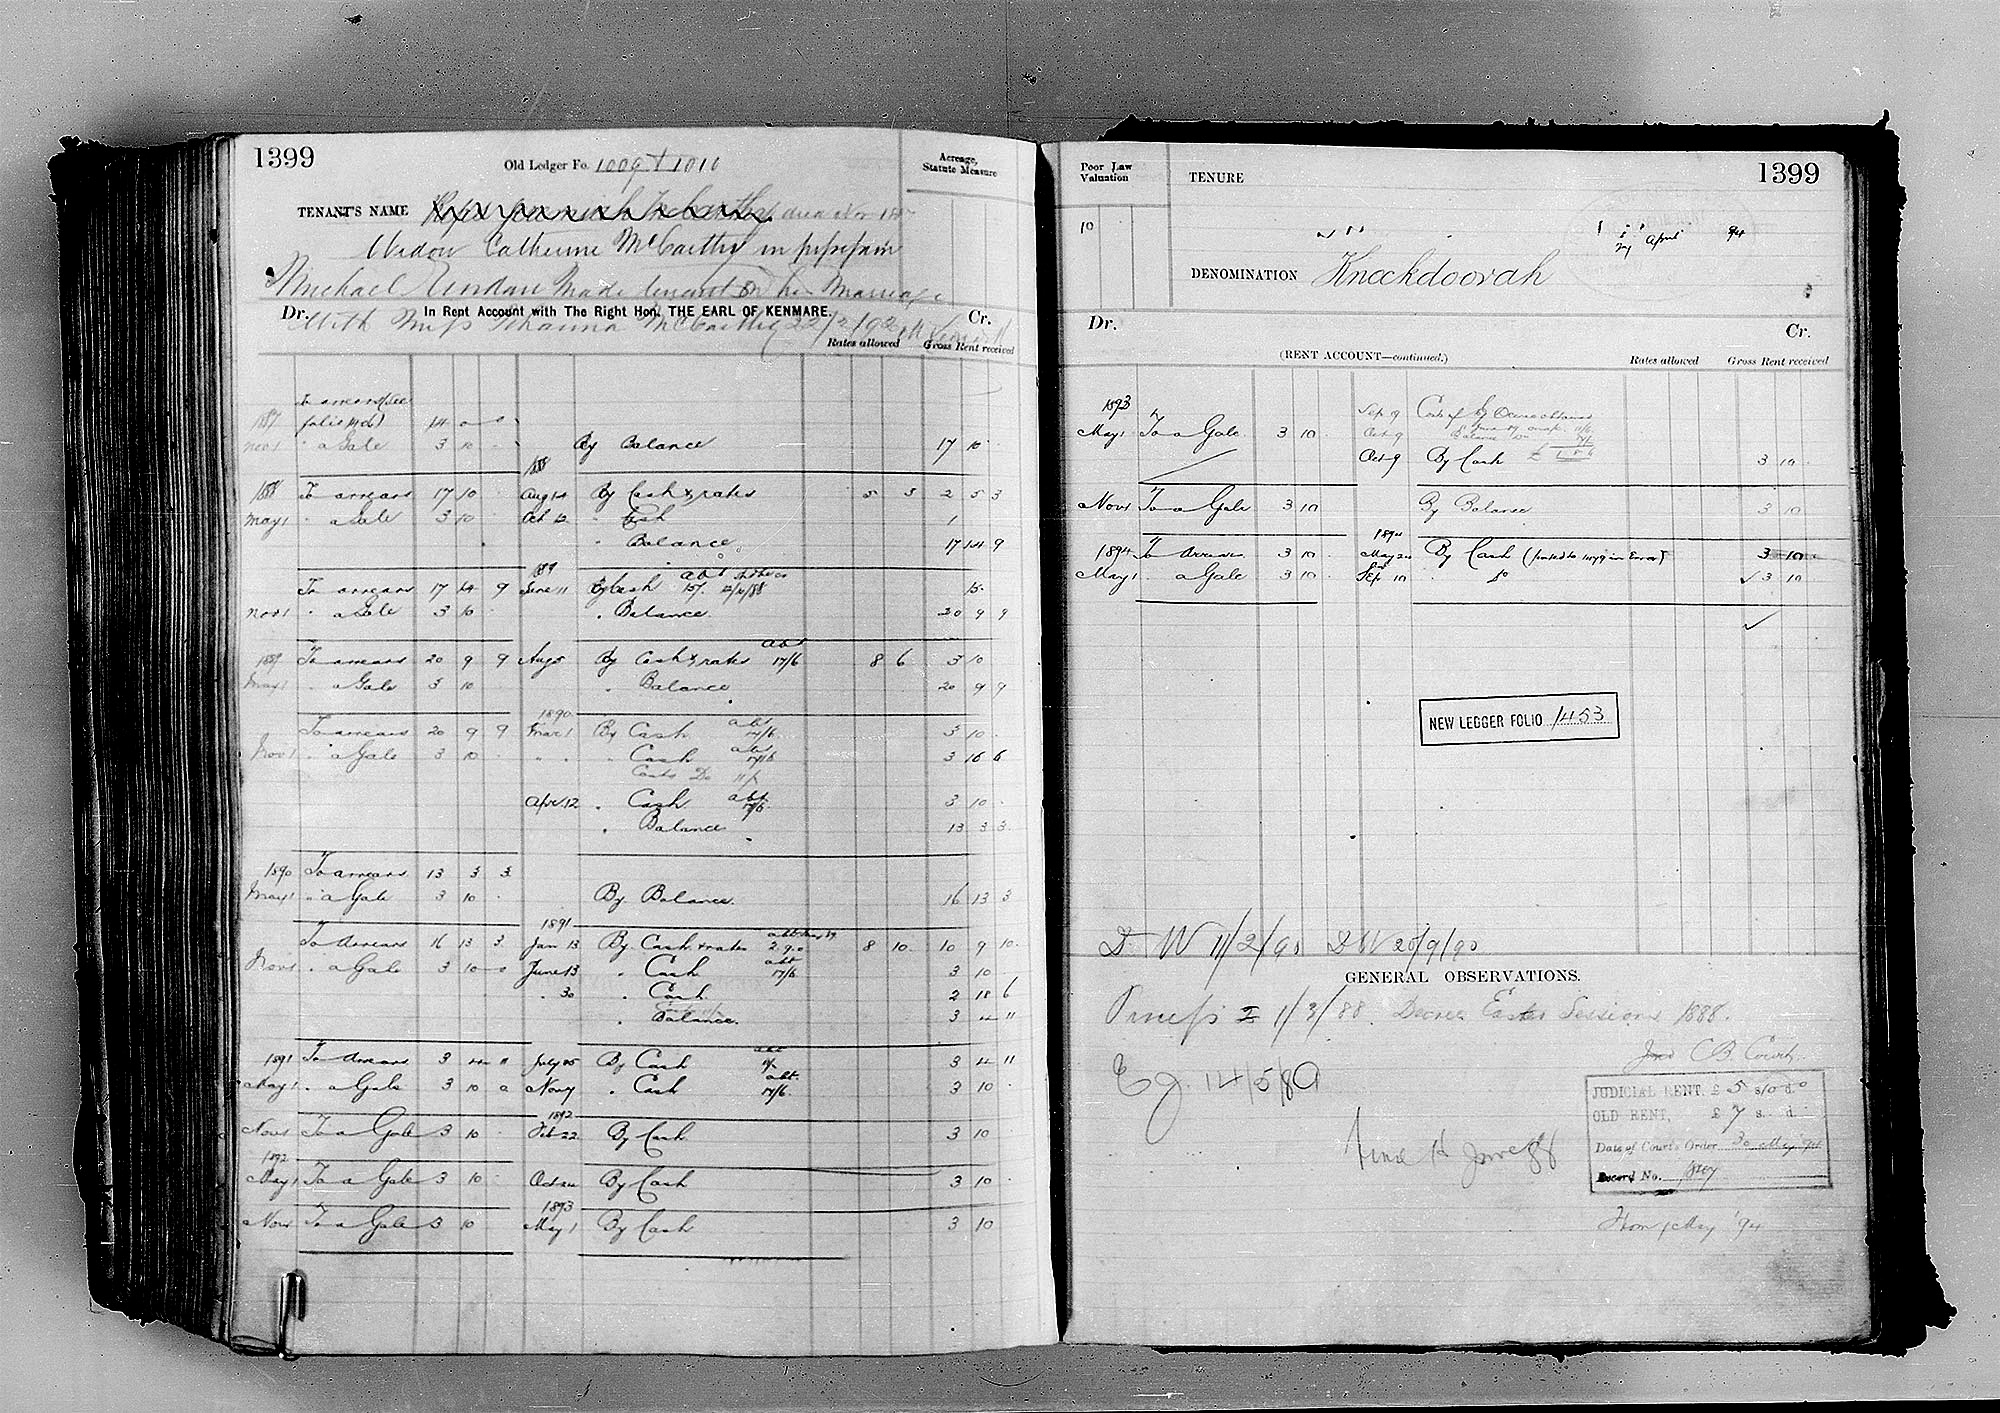 1399
Old Ledger Fo. 1009 + 1010
Acreage,
Statute Measure
TENANT'S NAME Jeremiah McCarthy Nov
Widow Catherine McCarthy in
Michael made tenant on his Marriage
Dr. In Rent Account with The Right Hon. THE EARL OF KENMARE. Cr.
With Miss Johanna McCarthy 22/2/92
Rates allowed Gross Rent received
To arrears (See
1887 folio 14 0 0
Nov 1 " a Gale 3 10 - By Balance 17 10 -
1888
1888 To arrears 17 10 - Aug 14 By Cash & rates 5 3 2 5 3
May 1 " a Gale 3 10 - Oct 12 " Cash 1
" Balance 17 14 9
1889
To arrears 17 14 9 June 11 By Cash abt 15/- 15 -
Nov 1 " a Gale 3 10 - " Balance 20 9 9
abt
1889 To arrears 20 9 9 Aug 5 By Cash & rates 17/6 8 6 3 10
May 1 " a Gale 3 10 - " Balance 20 9 9
1890
To arrears 20 9 9 Mar 1 By Cash abt 17/6 3 10 -
Nov 1 " a Gale 3 10 - " " " Cash abt 17/6 3 16 6
Costs Do
Apr. 12 " Cash abt 17/6 3 10 -
" Balance 13 3 3
1890 To arrears 13 3 3
May 1 " a Gale 3 10 - By Balance 16 13 3
1891
To Arrears 16 13 3 Jan 13 By Cash + rates 2.9.0 8 10 10 9 10
Nov 1 " a Gale 3 10 0 June 13 " Cash abt 17/6 3 10 -
" 30 " Cash 2 18 6
" Balance 3 4 11
1891 To Arrears 3 4 11 July 25 By Cash abt 3 4 11
May 1 " a Gale 3 10 0 Nov 7 " Cash abt. 17/6 3 10 -
1892
Nov 1 To a Gale 3 10 - Feb 22 By Cash 3 10
1892
May 1 To a Gale 3 10 - Oct By Cash 3 10 -
1893
Nov 1 To a Gale 3 10 May 1 By Cash 3 10
Poor Law
Valuation
TENURE
1399
10
April 94
DENOMINATION Knockdoorah
Dr. Cr.
(RENT ACCOUNT—continued.) Rates allowed Gross Rent received
1893
Sep 9 Costs of
May 1 To a Gale 3 10 - Oct 9 Balance Do
Oct 9 By Cash 3 10 -
Nov 1 To a Gale 3 10 By Balance 3 10
1894
1894 To Arrears 3 10 - May 24 By Cash (posted to 1479 in Error) 3 10 -
May 1 " a Gale 3 10 - Sep 10 " Do 3 10
NEW LEDGER FOLIO 1453
D W 11/2/90 D W 20/9/90
GENERAL OBSERVATIONS.
Process I 1/3/88. Decree Easter Sessions 1888.
Ej. 14/5/89
C B Court
JUDICIAL RENT, £ 5 s 10 d 0
OLD RENT, £ 7 s. d.
Date of Court's Order 30 May '94
Record No.
From 1 May '94